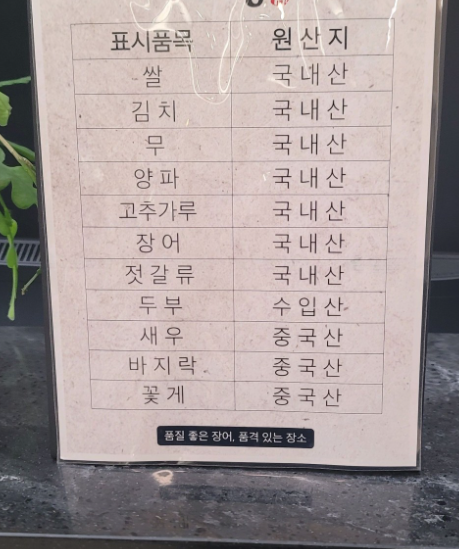 표시품목 원산지
쌀 국내산
김치 국내산
무 국내산
양파 국내산
고추가루 국내산
장어 국내산
젓갈류 국내산
두부 수입산
새우 중국산
바지락 중국산
꽃게 중국산
품질 좋은 장어, 품격 있는 장소